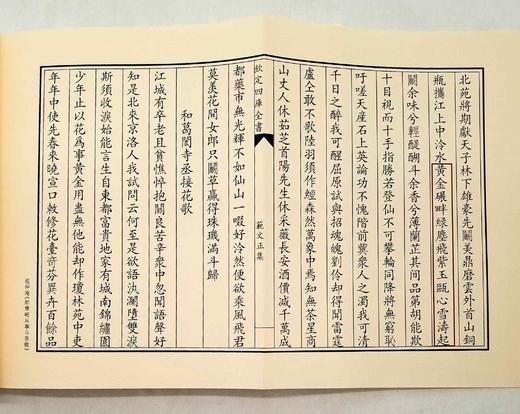 北苑將期獻天子林下雄豪先鬭美鼎磨雲外首山銅
瓶攜江上中泠水黃金碾畔綠塵飛紫玉甌心雪濤起
鬭余味兮輕醍醐斗余香兮薄蘭芷其間品第胡能欺
十目視而十手指勝若登仙不可攀輸同降將無窮恥
吁嗟天産石上英論功不愧階前蓂衆人之濁我可清
千日之醉我可醒屈原試與招魂魄劉伶却得聞雷霆
盧仝敢不歌陸羽須作經森然萬象中焉知無茶星商
山丈人休茹芝首陽先生休采薇長安酒價减千萬成
欽定四庫全書
范文正集
都藥市無光輝不如仙山一啜好泠然便欲乘風飛君
莫羡花間女郎只鬭草贏得珠璣滿斗歸
和葛閎寺丞接花歌
江城有卒老且貧憔悴抱關良苦辛衆中忽聞語聲好
知是北來京洛人我試問云何至是欲語汍瀾墮雙淚
斯須收淚始能言生自東都富貴地家有城南錦繡園
少年止以花爲事黃金用盡無他能却作瓊林苑中吏
年年中使先春來曉宣口敕修花臺奇芬異卉百餘品
范仲淹《和章岷从事斗茶歌》